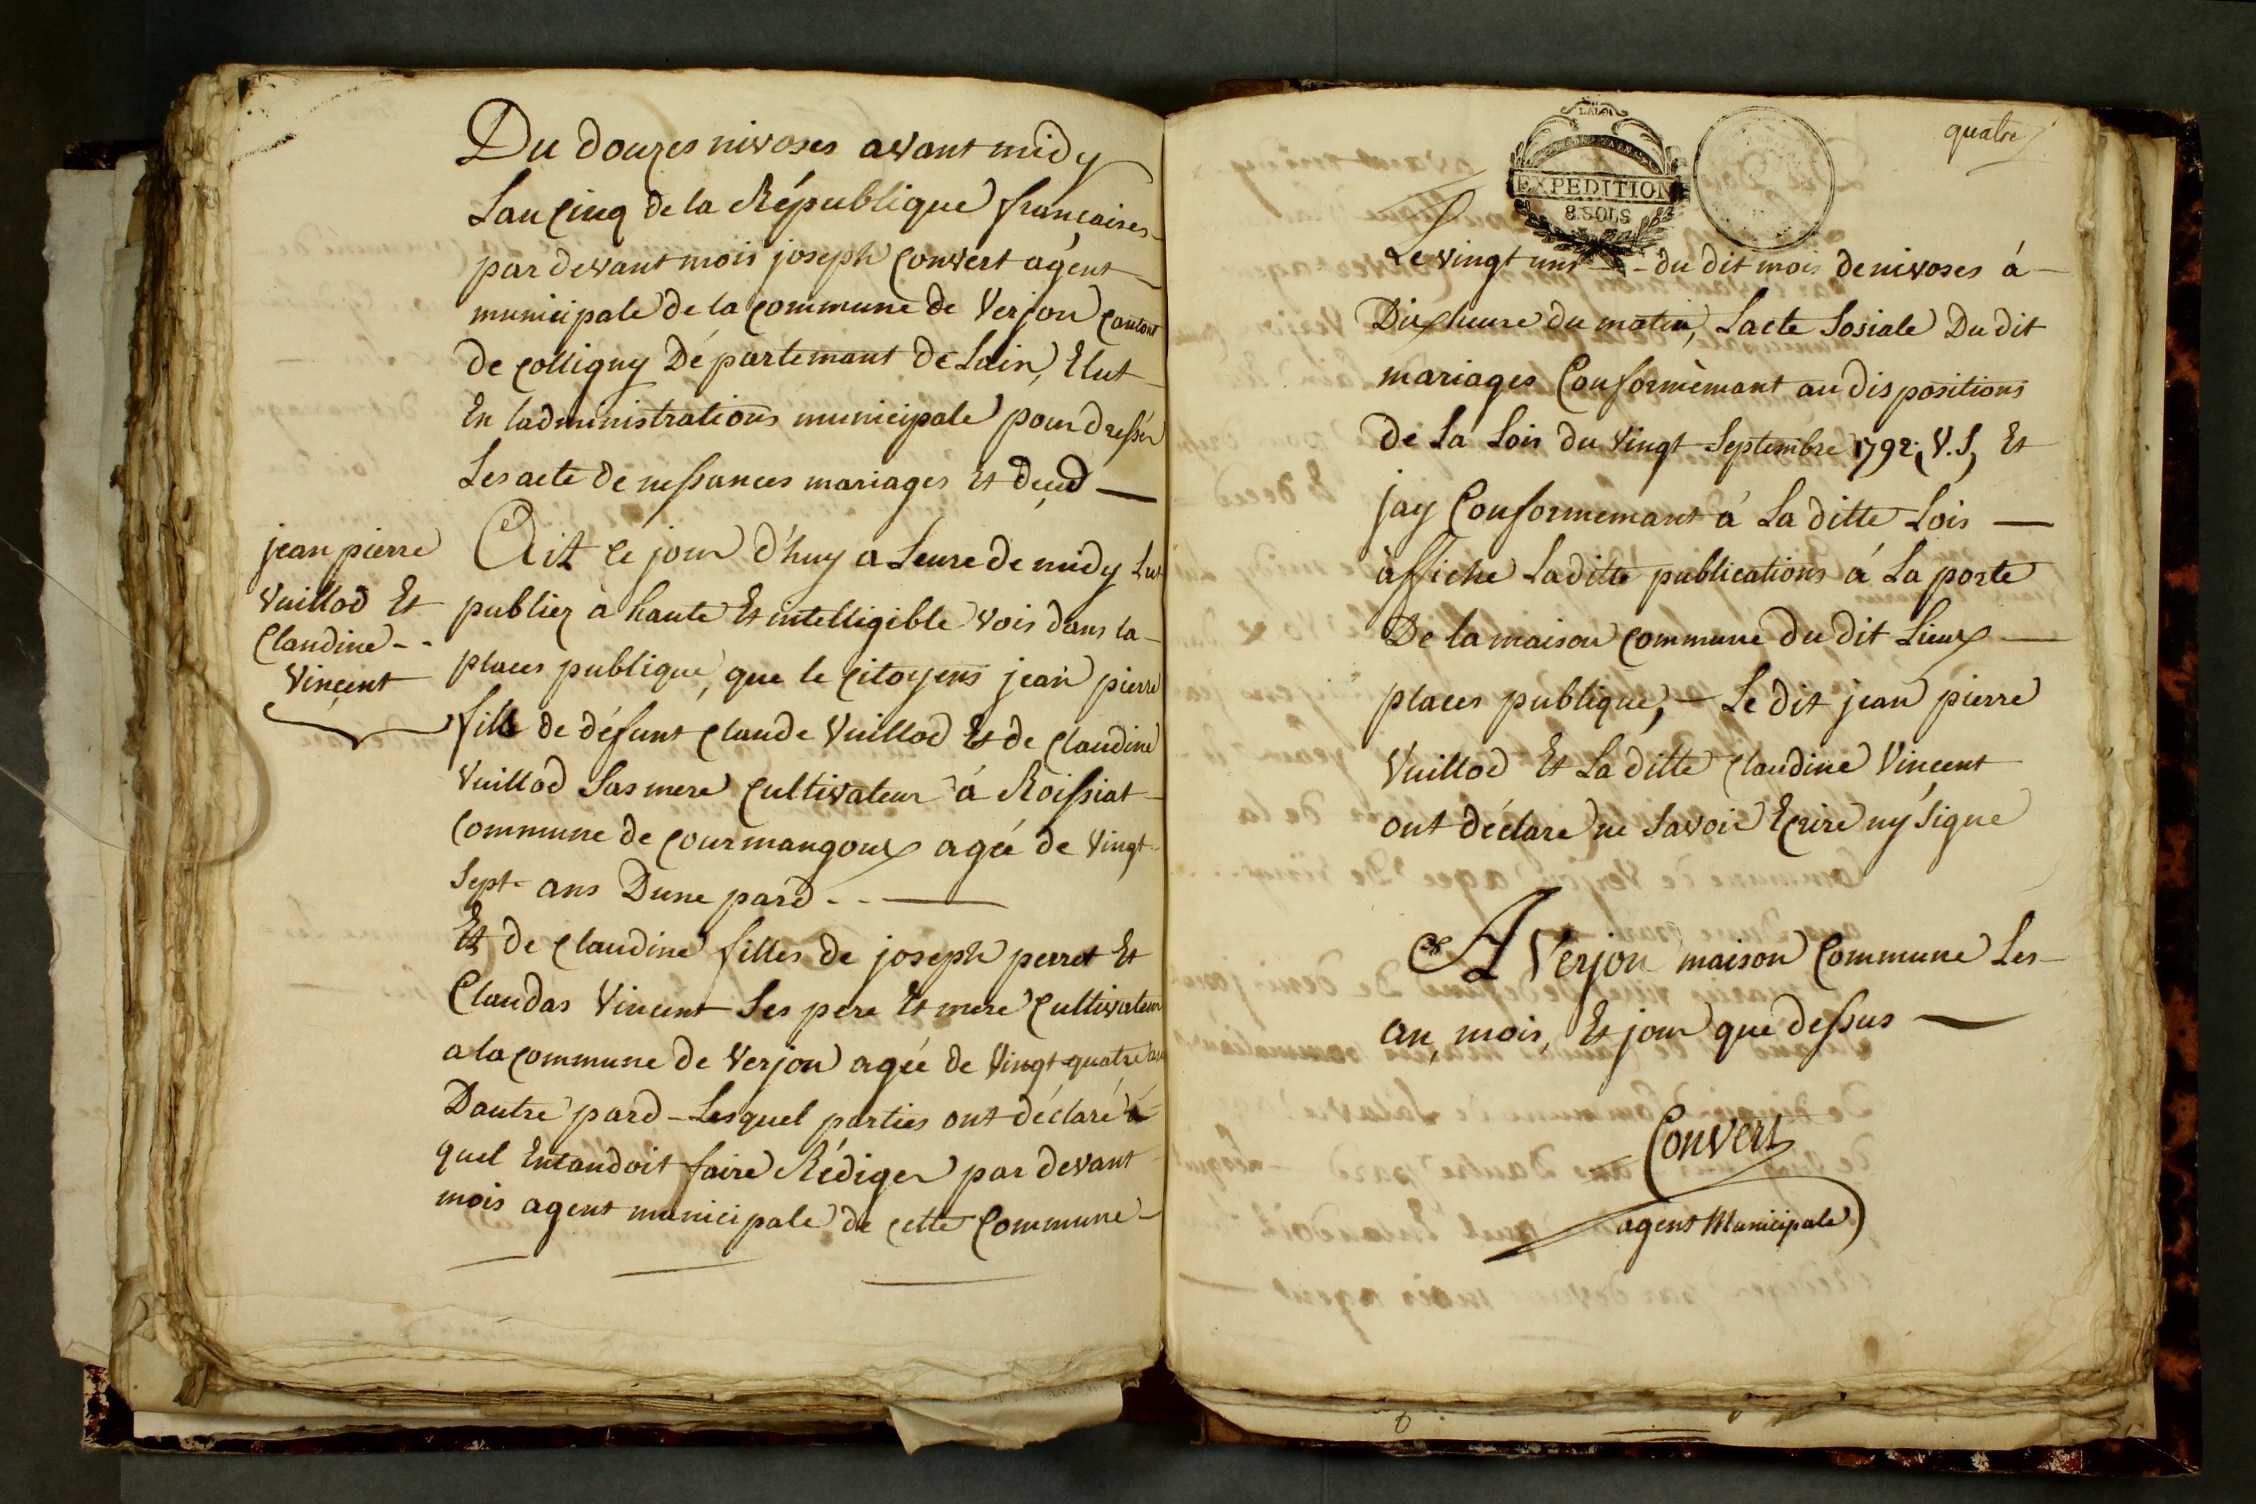 Du douzes nivoses avant midy
Lan cinq de la République françaises
par devant mois joseph Convert agent
municipale de la commune de Verjon Canton
de colligny Département de Lain, Elut
En ladministrations municipale pour dresser
Les acte de nessances mariages Et deced
jean pierre
Vuillod Et
Claudine
Vincent
Ait ce jour d'huy a Leure de midy Lut
publiez a haute Et intelligible vois dans la
places publique, que le citoyens jean pierre
fils de défunt Claude Vuillod Et de Claudine
Vuillod Sas mere Cultivateur á Roissiat
Commune de Courmangoux agée de Vingt
Sept ans Dune pard
Et de Claudine filles de joseph perret Et
Claudas Vincent Ses pere Et mere Cultivateur
a la commune de Verjon agée de Vingt quatre ans
Dautre pard Lesquel parties ont déclaré
quel Entandoit faire Rédiger par devant
mois agent municipale de cette Commune
quatre
LA LOI
EXPEDITION
8 SOLS
Le vingt uns du dit mois de nivoses á
Dix heure du matin, Lacte Sosiale Du dit
mariages Conformèmant au dispositions
de la Lois du Vingt Septembre 1792, V.S, Et
jay Conformemant á La ditte Lois
àffiche Laditte publications á La porte
De la maison Commune du dit Lieux
places publique, Le dit jean pierre
Vuillod Et La ditte Claudine Vincent
ont déclare ne Savoir Ecrire ny Signe
A Verjon maison Commune Les
an, mois, Et jour que dessus
Convert
agent Municipale